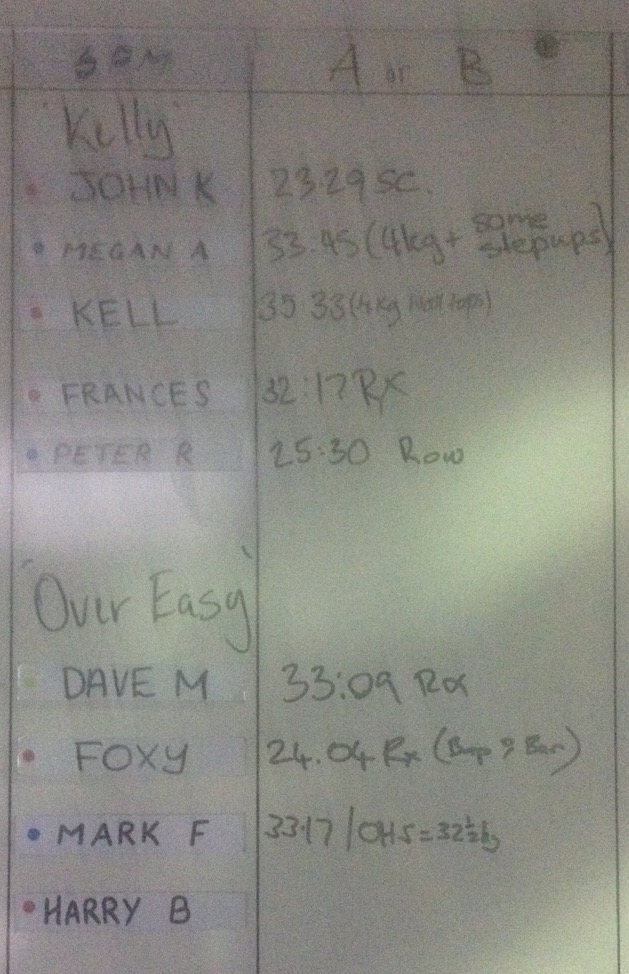 A or B
'Kelly'
JOHN K 23.29 SC.
MEGAN A 33.45 (4kg + some stepups)
KELL 35 33 (4kg
FRANCES 32:17 RX
PETER R 25:30 Row
'Over Easy'
DAVE M 33:09 Rx
FOXY 24.04 Rx (Burp Bar)
MARK F 33.17 / OHS = 32½kg
HARRY B